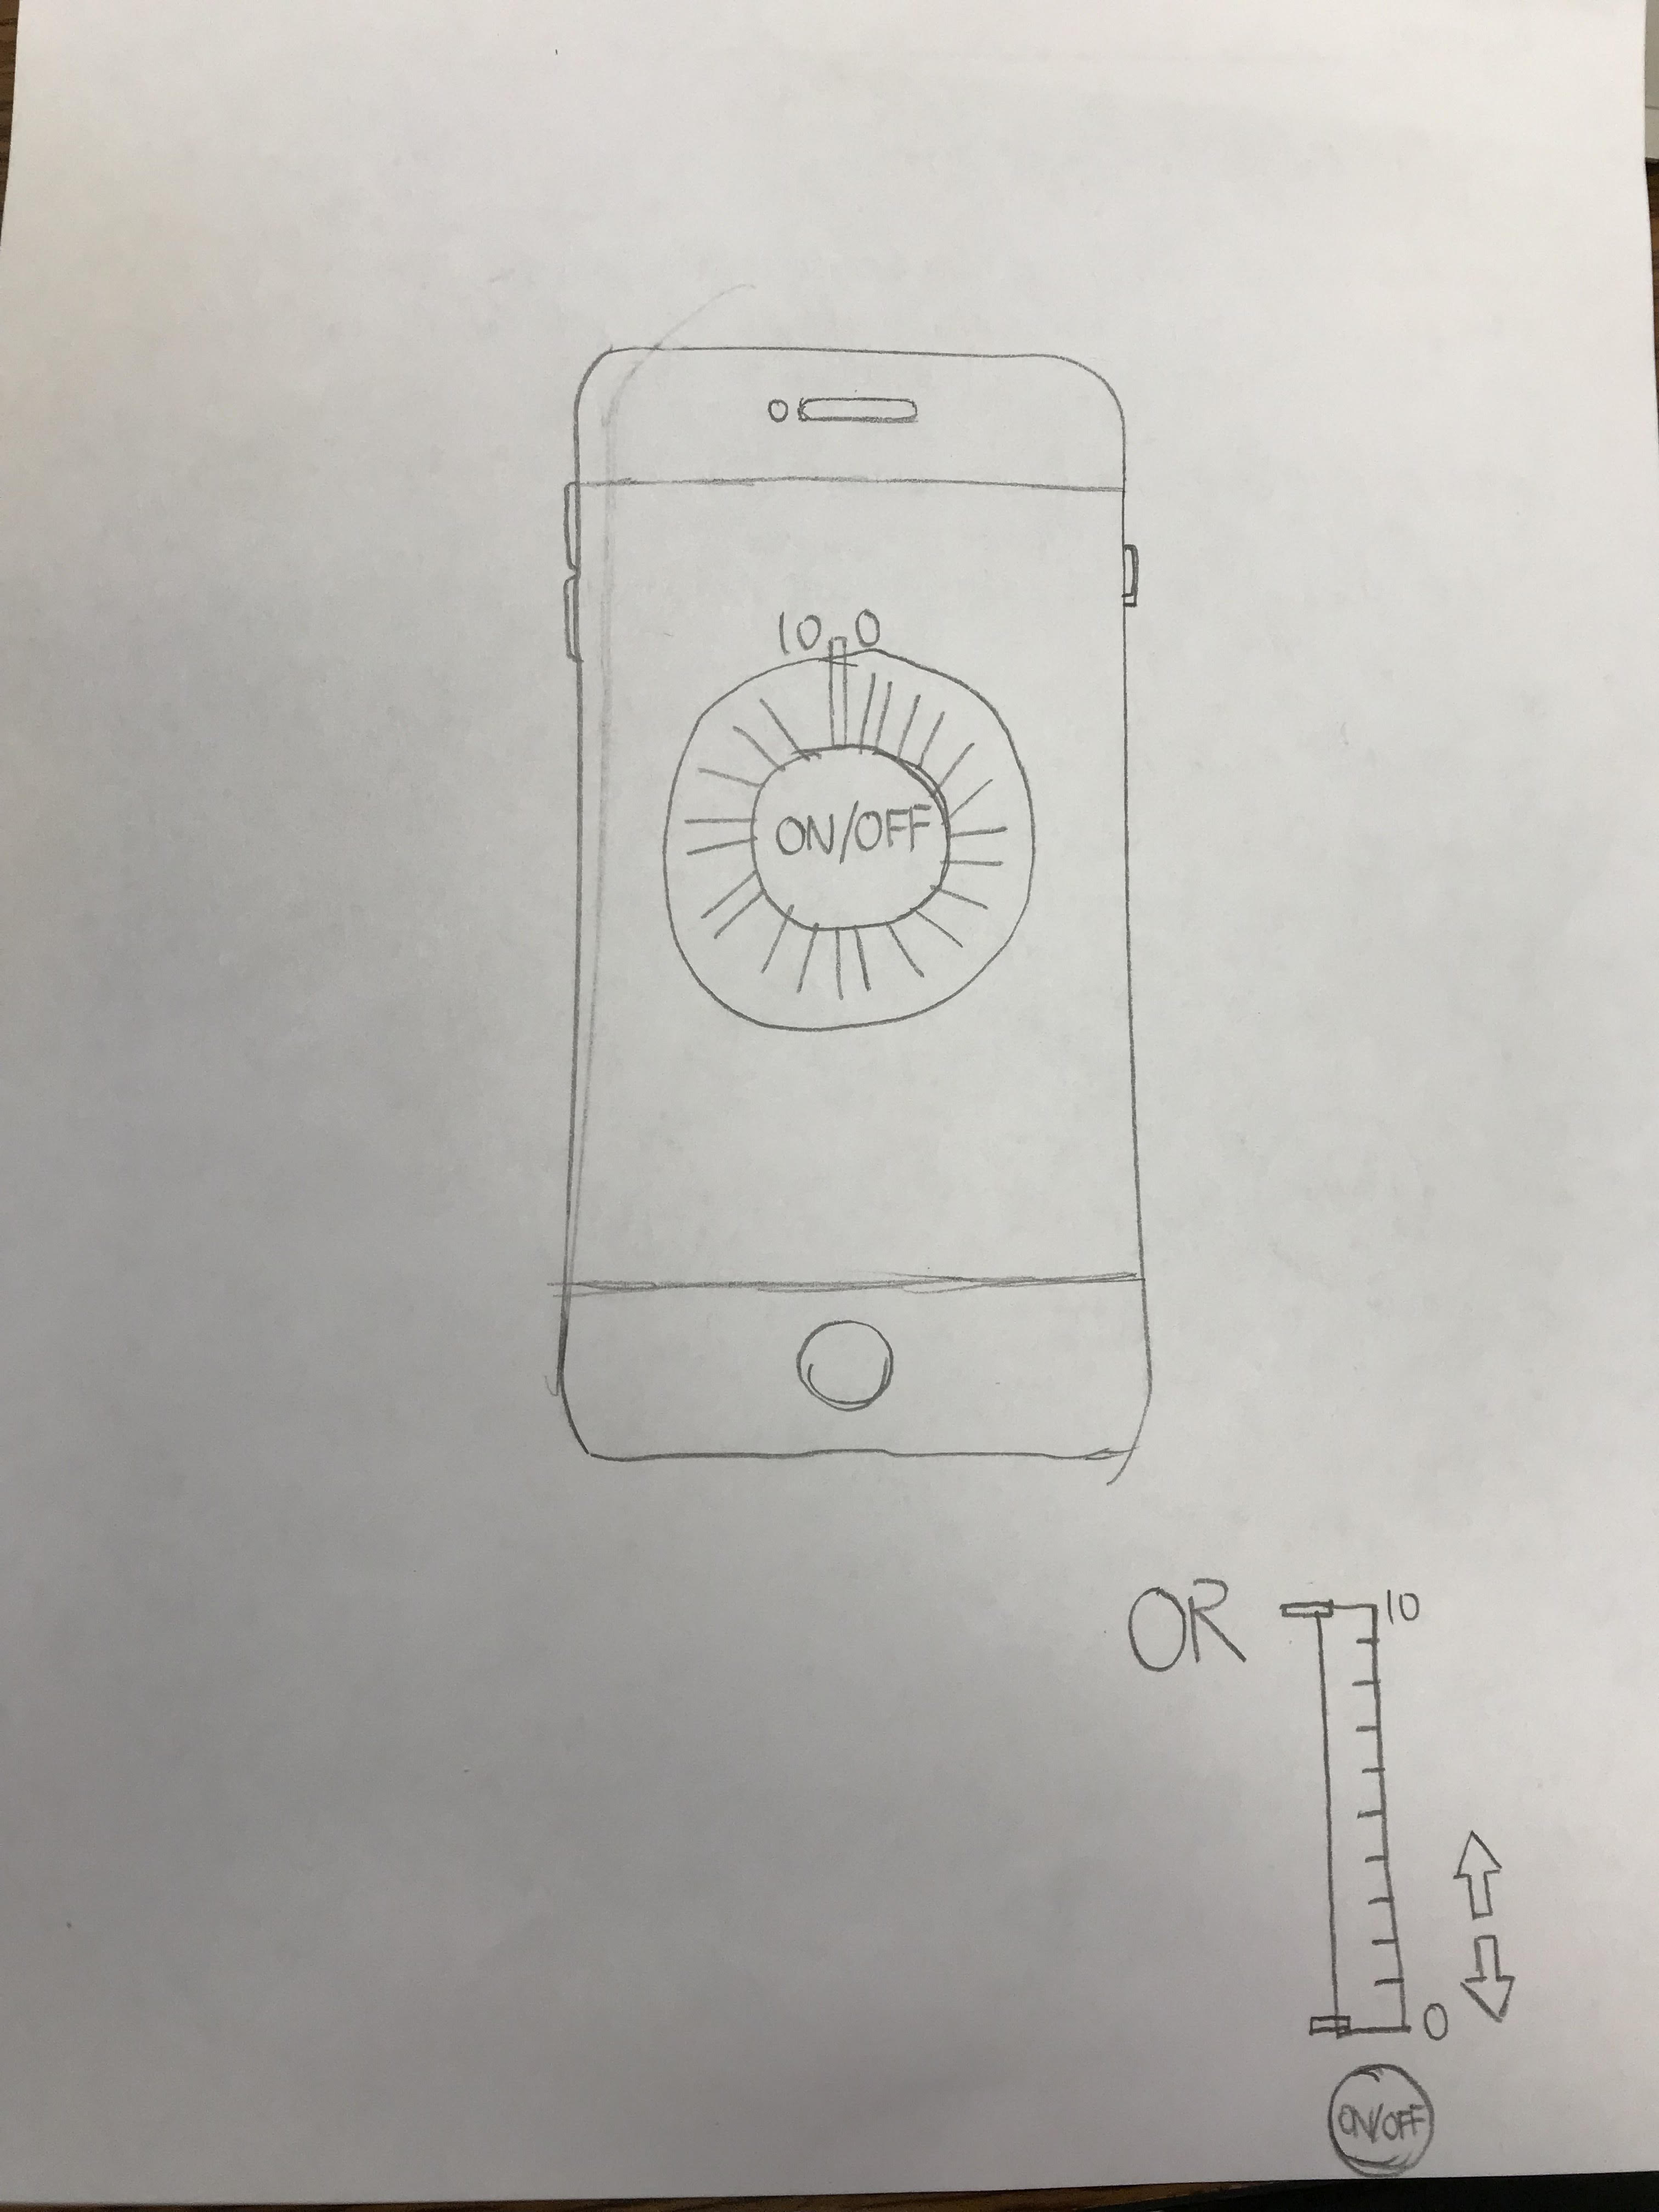 10 0
ON/OFF
OR
10
0
ON/OFF